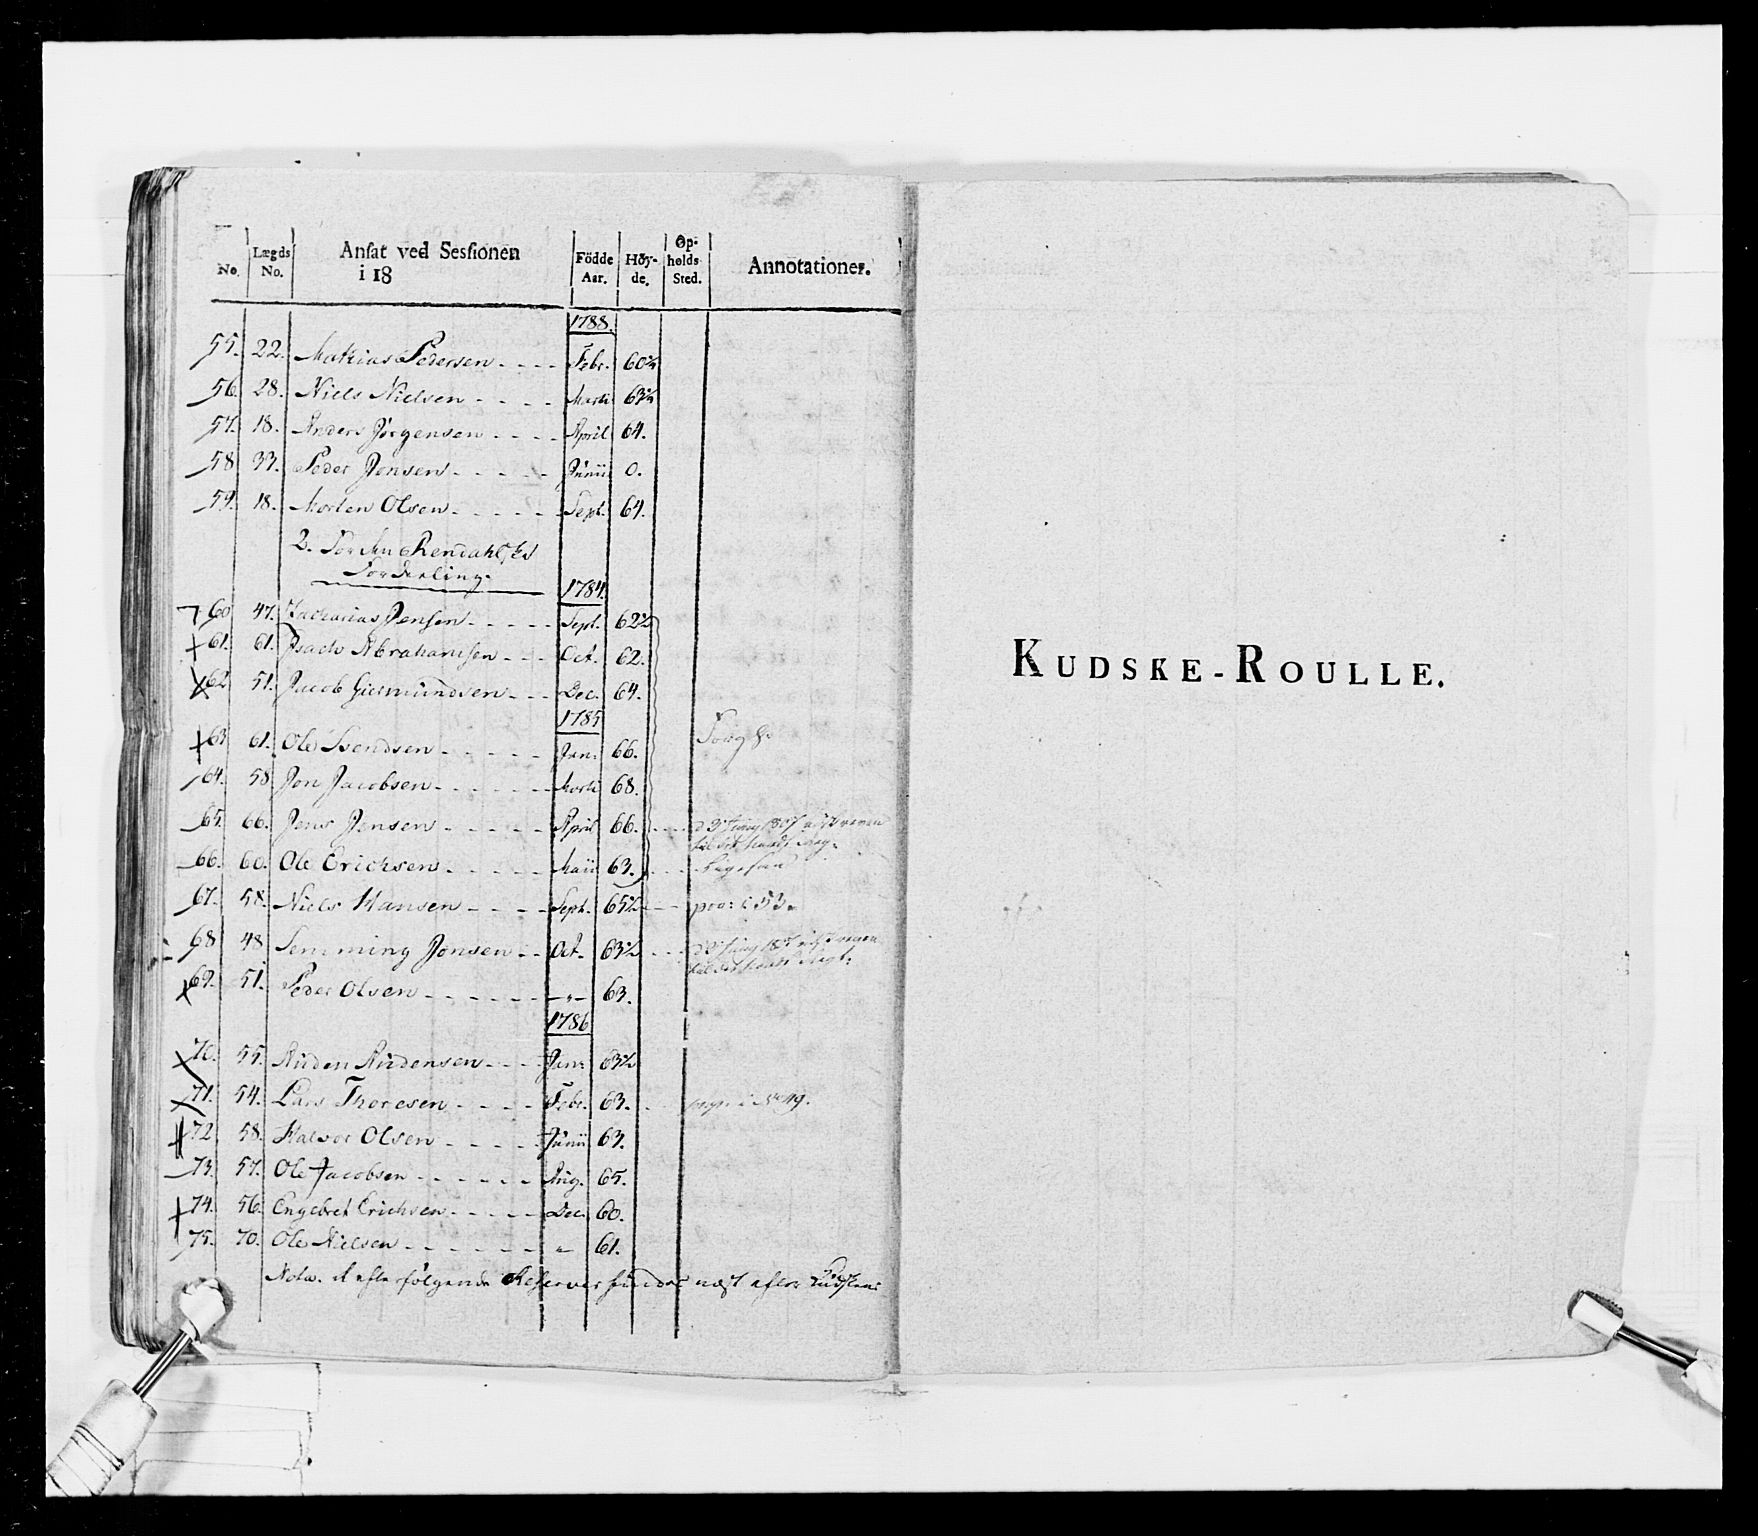 No. | Lægds No. | Ansat ved Sessionen i 18 | Födde Aar. | Höy-de. | Op-holds Sted. | Annotationer.
1788.
55. 22. Mathias Pedersen - - - - Febr. 60¾
56. 28. Niels Nielsen - - - - Marti 63¾
57. 18. Anders Jörgensen - - - - April 64.
58 33. Peder Jensen - - - - - Junii 0.
59. 18. Morten Olsen - - - - - Sept. 64.
2. For den Rendahlske
Fordeling.
1784.
60 47. Zacharias Jensen - - - - - Sept. 62½
61. 61. Isach Abrahamsen - - - Oct. 62.
62 51. Jacob Giermundsen - - - Dec. 64.
1785
63 61. Ole Svendsen - - - - - - Jan: 66.
64. 58 Jon Jacobsen - - - - - - - Marti 68.
65. 66. Jens Jensen - - - - - April 66.
66. 60. Ole Erichsen - - - - - Maii 63. - - - Ligesaa
67. 58. Niels Hansen - - - - Sept. 65½ - - - i 53.
68 48 Semming Jonsen - - Oct. 63½
69. 51. Peder Olsen - - - - - - - „ - 63.
1786
70. 55. Auden Audensen - - - - Jan: 63½
71. 54. Lars Thoresen - - - - Febr. 63. - - i No 49.
72. 58. Halvor Olsen - - - - - Junii 63.
73. 57. Ole Jacobsen - - - - - - Aug. 65.
74. 56. Engebret Erichsen - - - - - Dec. 60.
75. 70. Ole Nielsen - - - - - - - „ - 61.
Nota. efterfölgende Reserver næst efter
KUDSKE-ROULLE.